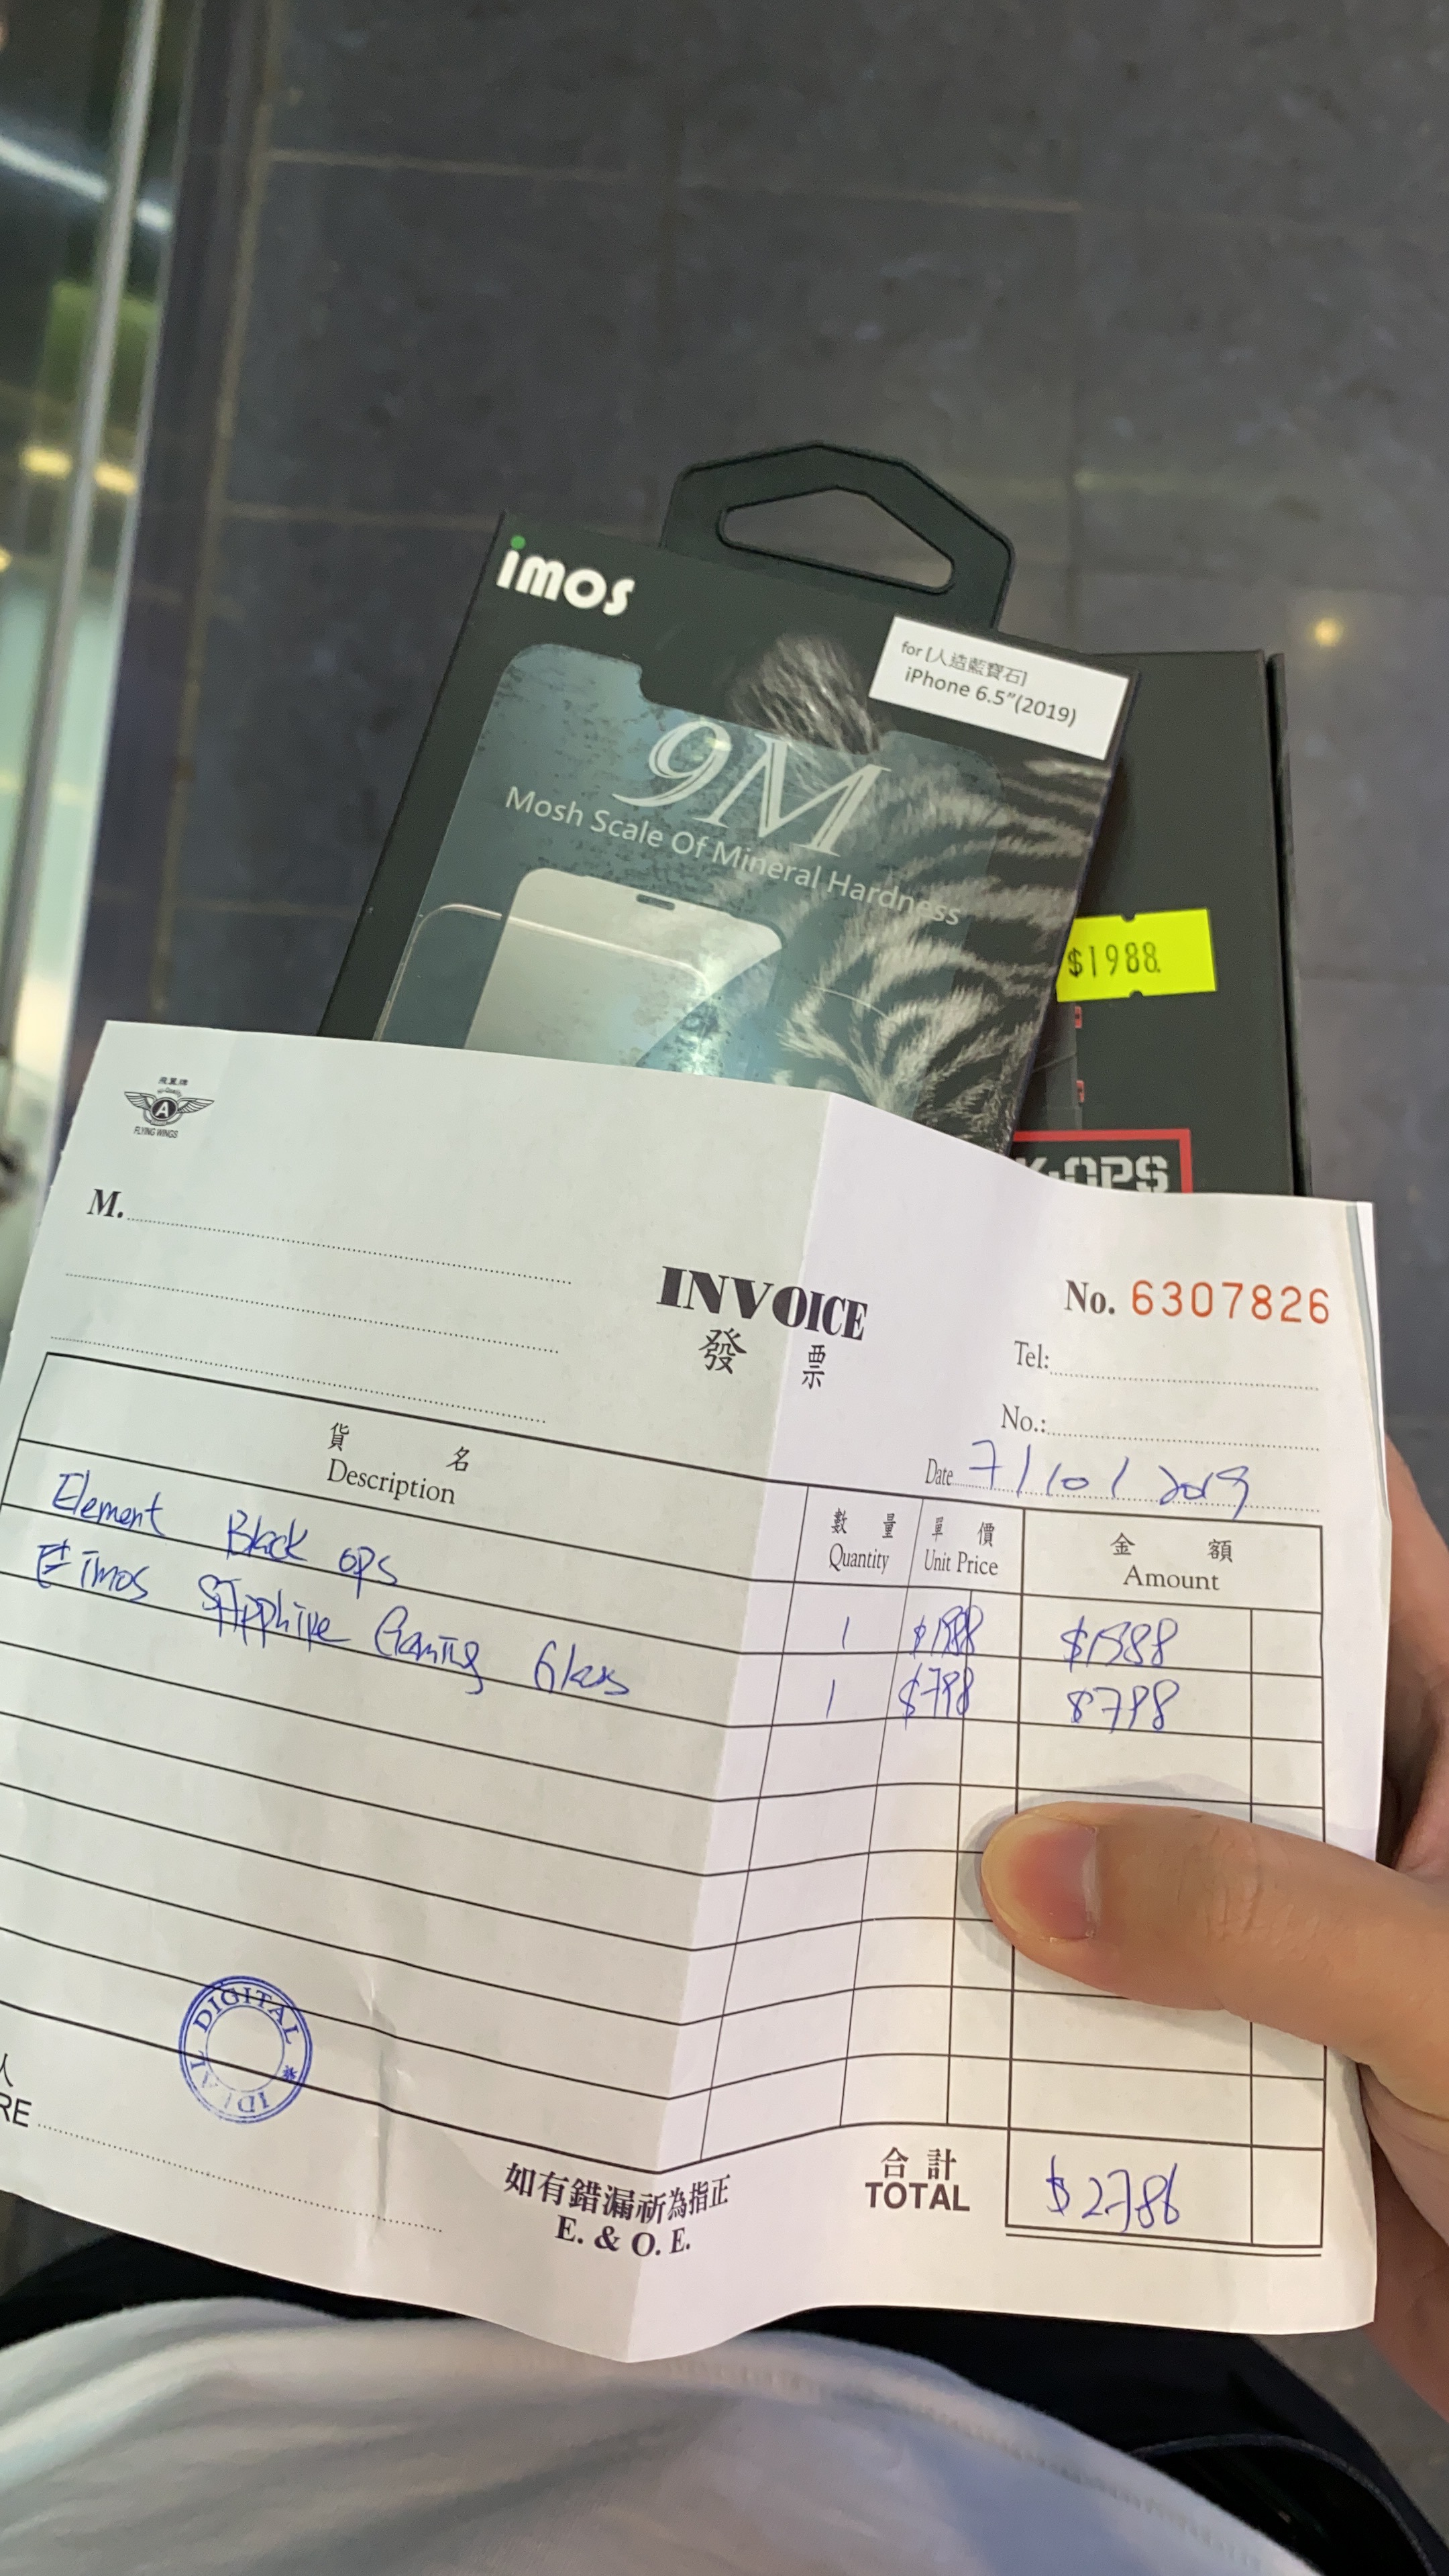 imos
for [人造藍寶石]
iPhone 6.5"(2019)
9M
Mosh Scale Of Mineral Hardness
$1988.
K-OPS
飛鷹牌
A
FLYING WINGS
M.
INVOICE
發 票
No. 6307826
Tel:
No.:
Date 7/10/2019
貨 名
Description
數 量
Quantity
單 價
Unit Price
金 額
Amount
Element Black ops 1 $1988 $1988
imos SApphire Gaming Glass 1 $798 $798
DIGITAL
人
RE
如有錯漏祈為指正
E. & O. E.
合計
TOTAL
$2786